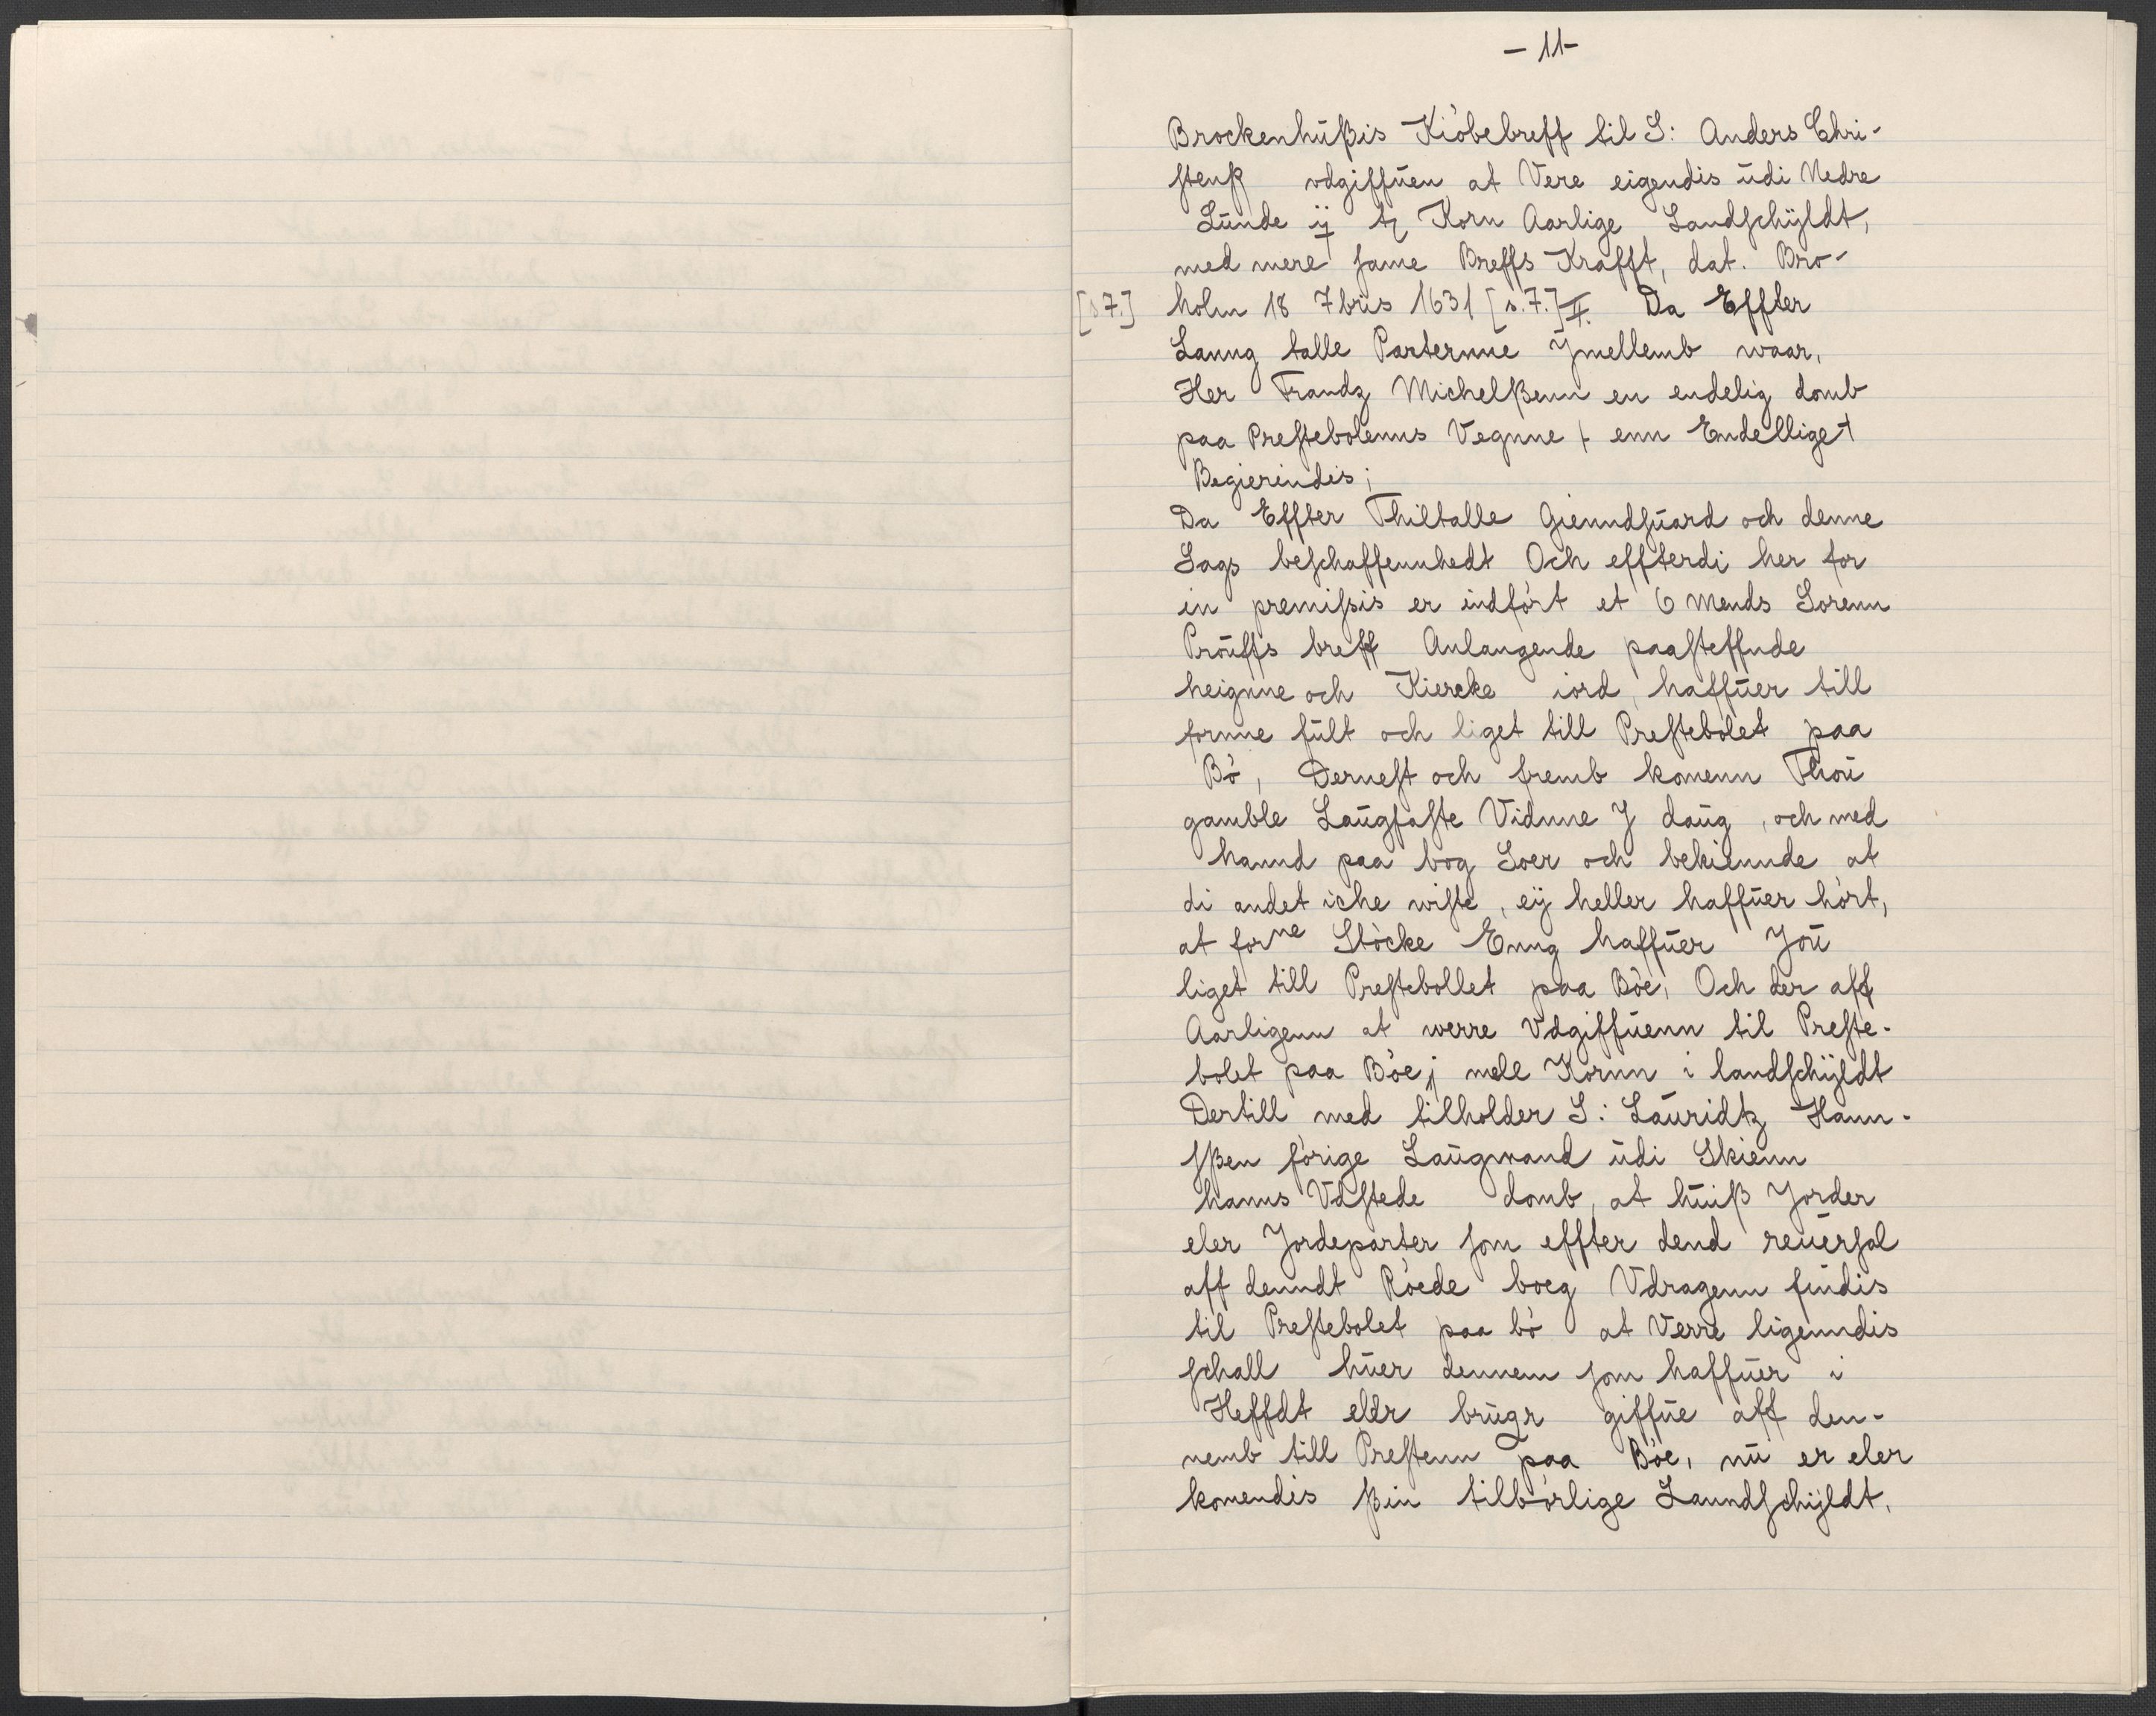 - 11 -
Brockenhůßis Kiòbebreff til S: Anders Chri-
stenß vdgiffůen at Vere eigendis ůdi Nedre
Lůnde ij tz Korn Aarlige Landschÿldt,
med mere same Breffs Krafft, dat. Bro-
[s7.] holm 18 7bris 1631 [s.7.] II. Da Effter
Lanng talle Parternne Ymellemb waar,
Her Frandz Michelßenn en endelig domb
paa Prestebolenns Vegnne / enn Endelliget
Begierindis;
Da Effter Thiltalle Gienndsůard och denne
Sags beschaffennhedt Och effterdi her for
in premissis er indfòrt et 6 Mends Sorenn
Proůffs breff Anlangende paasteffnde
heignne och Kiercke iord, haffůer till
fornne fůlt och liget till Prestebolet paa
Bò, Dernest och fremb komenn Thoů
gamble Laůgfaste Vidnne J daůg, och med
hannd paa bog Soer och bekiennde at
di andet iche wiste, eÿ heller haffůer hòrt,
at forne Stòcke Enng haffůer Joů
liget till Prestebollet paa Bòe, Och der aff
Aarligenn at werre Vdgiffůenn til Preste-
bolet paa Bòe j mele Kornn i landschÿldt
Dertill med tilholder S: Laůridtz Hann-
sßen fòrige Laůgmand ůdi Skienn
hanns Vdstede domb, at hůiß Jorder
eler Jordeparter som effter dend reůersal
aff denndt Ròede boeg Vdragenn findis
til Prestebolet paa bò at Verre ligenndis
schall hůer dennem som haffůer i
Heffdt eler brůgr giffůe aff den-
nemb till Prestenn paa Bòe, nů er eler
komendis ßin tilbòrlige Lanndschÿldt,